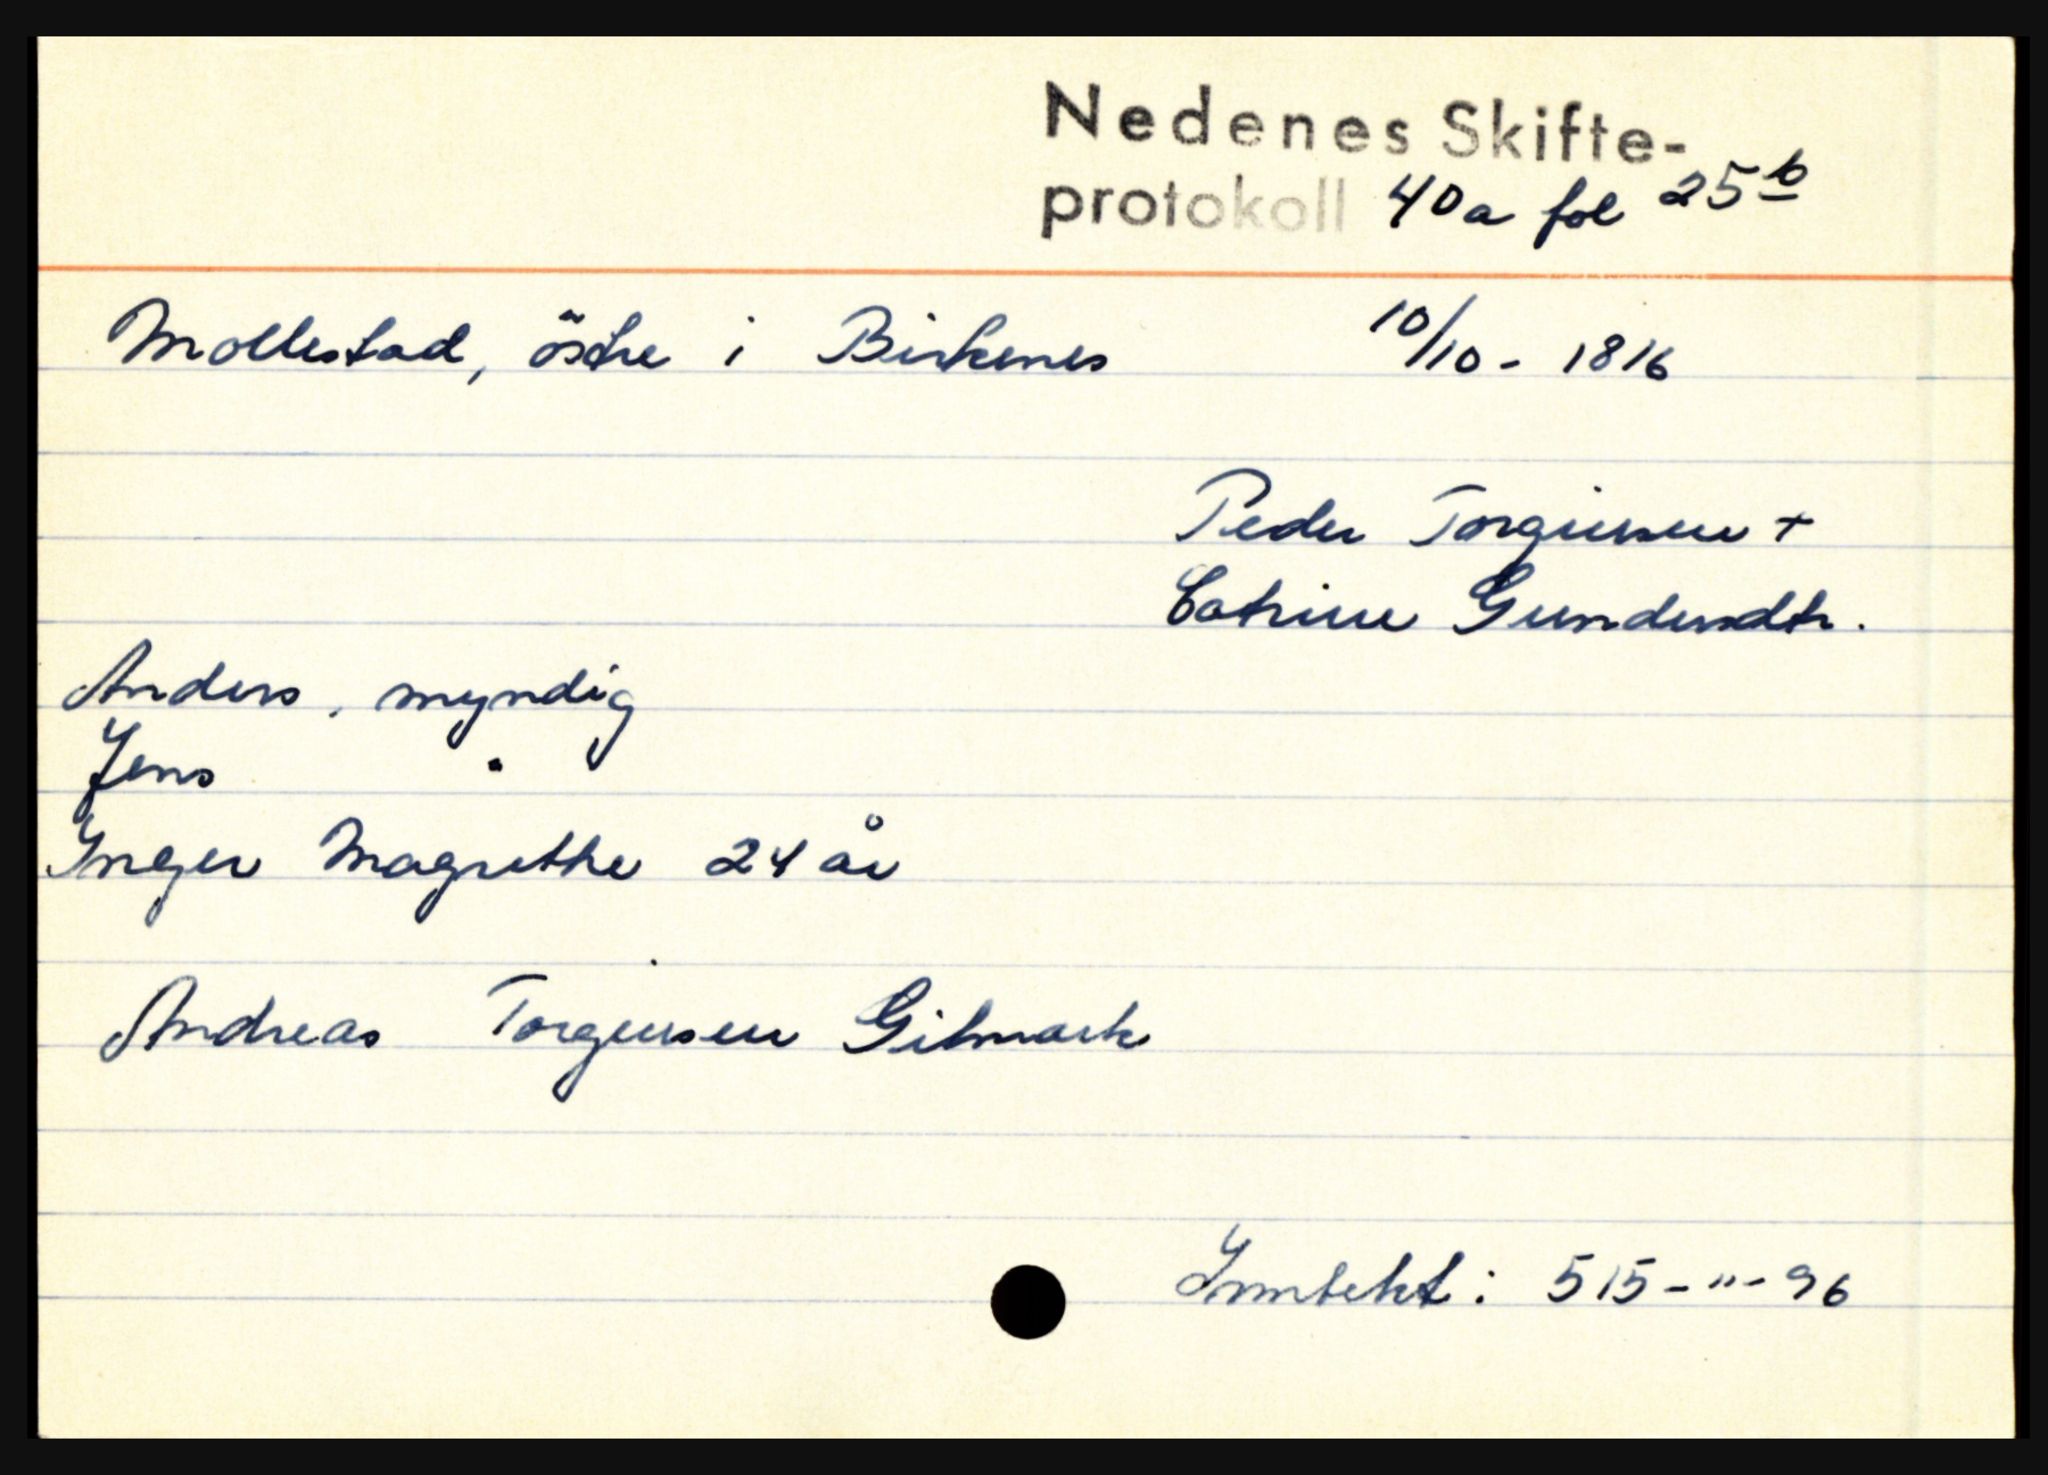 Nedenes Skifte-
protokoll 40a fol 25b
Mollestad, östre i Birkenes 10/10 - 1816
Peder Torgiersen +
Catrine Gundersdtr.
Anders, myndig
Jens "
Inger Magrethe 24 år
Andreas Torgiersen Gitmark
Inntekt: 515-"-96